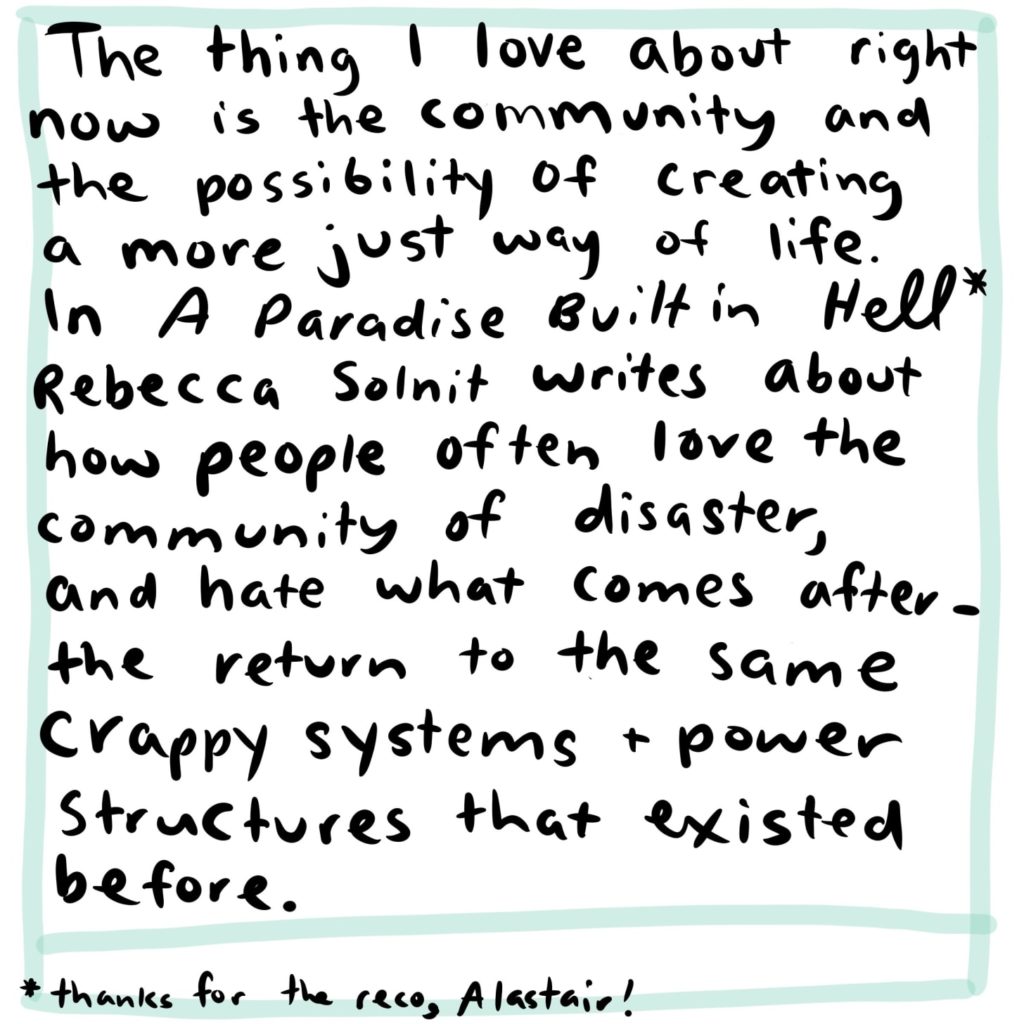 The thing I love about right
now is the community and
the possibility of creating
a more just way of life.
In A Paradise Built in Hell*
Rebecca Solnit writes about
how people often love the
community of disaster,
and hate what comes after -
the return to the same
crappy systems + power
structures that existed
before.
* thanks for the reco, Alastair!